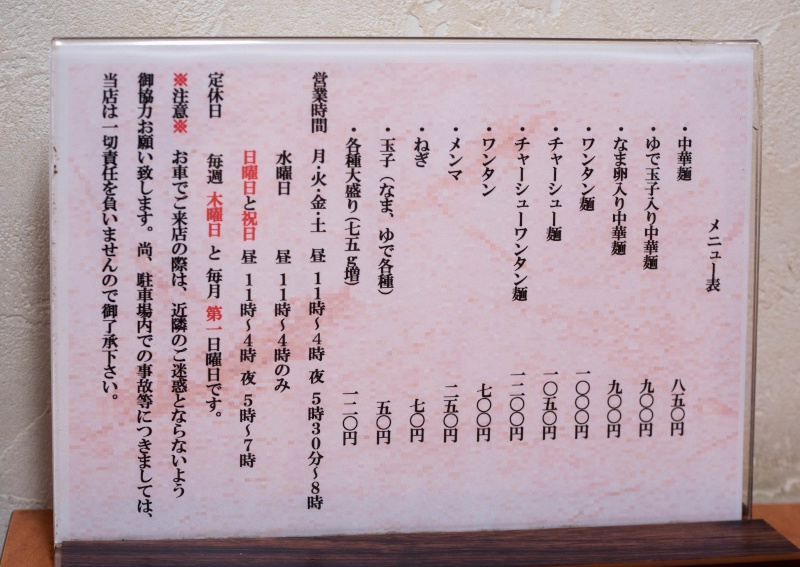 メニュー表
・中華麺 八五〇円
・ゆで玉子入り中華麺 九〇〇円
・なま卵入り中華麺 九〇〇円
・ワンタン麺 一〇〇〇円
・チャーシュー麺 一〇五〇円
・チャーシューワンタン麺 一二〇〇円
・ワンタン 七〇〇円
・メンマ 二五〇円
・ねぎ 七〇円
・玉子（なま、ゆで各種） 五〇円
・各種大盛り(七五ｇ増) 一二〇円
営業時間 月・火・金・土 昼 １１時～４時 夜 ５時３０分～８時
水曜日 昼 １１時～４時のみ
日曜日と祝日 昼 １１時～４時 夜 ５時～７時
定休日 毎週 木曜日 と 毎月 第一日曜日です。
※注意※ お車でご来店の際は、近隣のご迷惑とならないよう
御協力お願い致します。尚、駐車場内での事故等につきましては、
当店は一切責任を負いませんので御了承下さい。